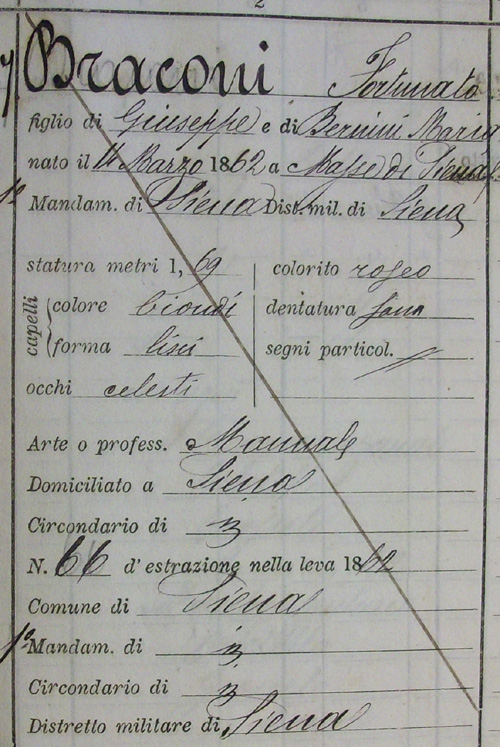 2
Braconi Fortunato
figlio di Giuseppe e di Bernini Maria
nato il 14 Marzo 1862 a Masse di Siena
1º Mandam. di Siena Dist. mil. di Siena
statura metri 1,69
colorito roseo
capelli
colore biondi
dentatura sana
forma lisci
segni particol. //
occhi celesti
Arte o profess. Manuale
Domiciliato a Siena
Circondario di
N. 66 d'estrazione nella leva 1862
Comune di Siena
1º Mandam. di
Circondario di
Distretto militare di Siena